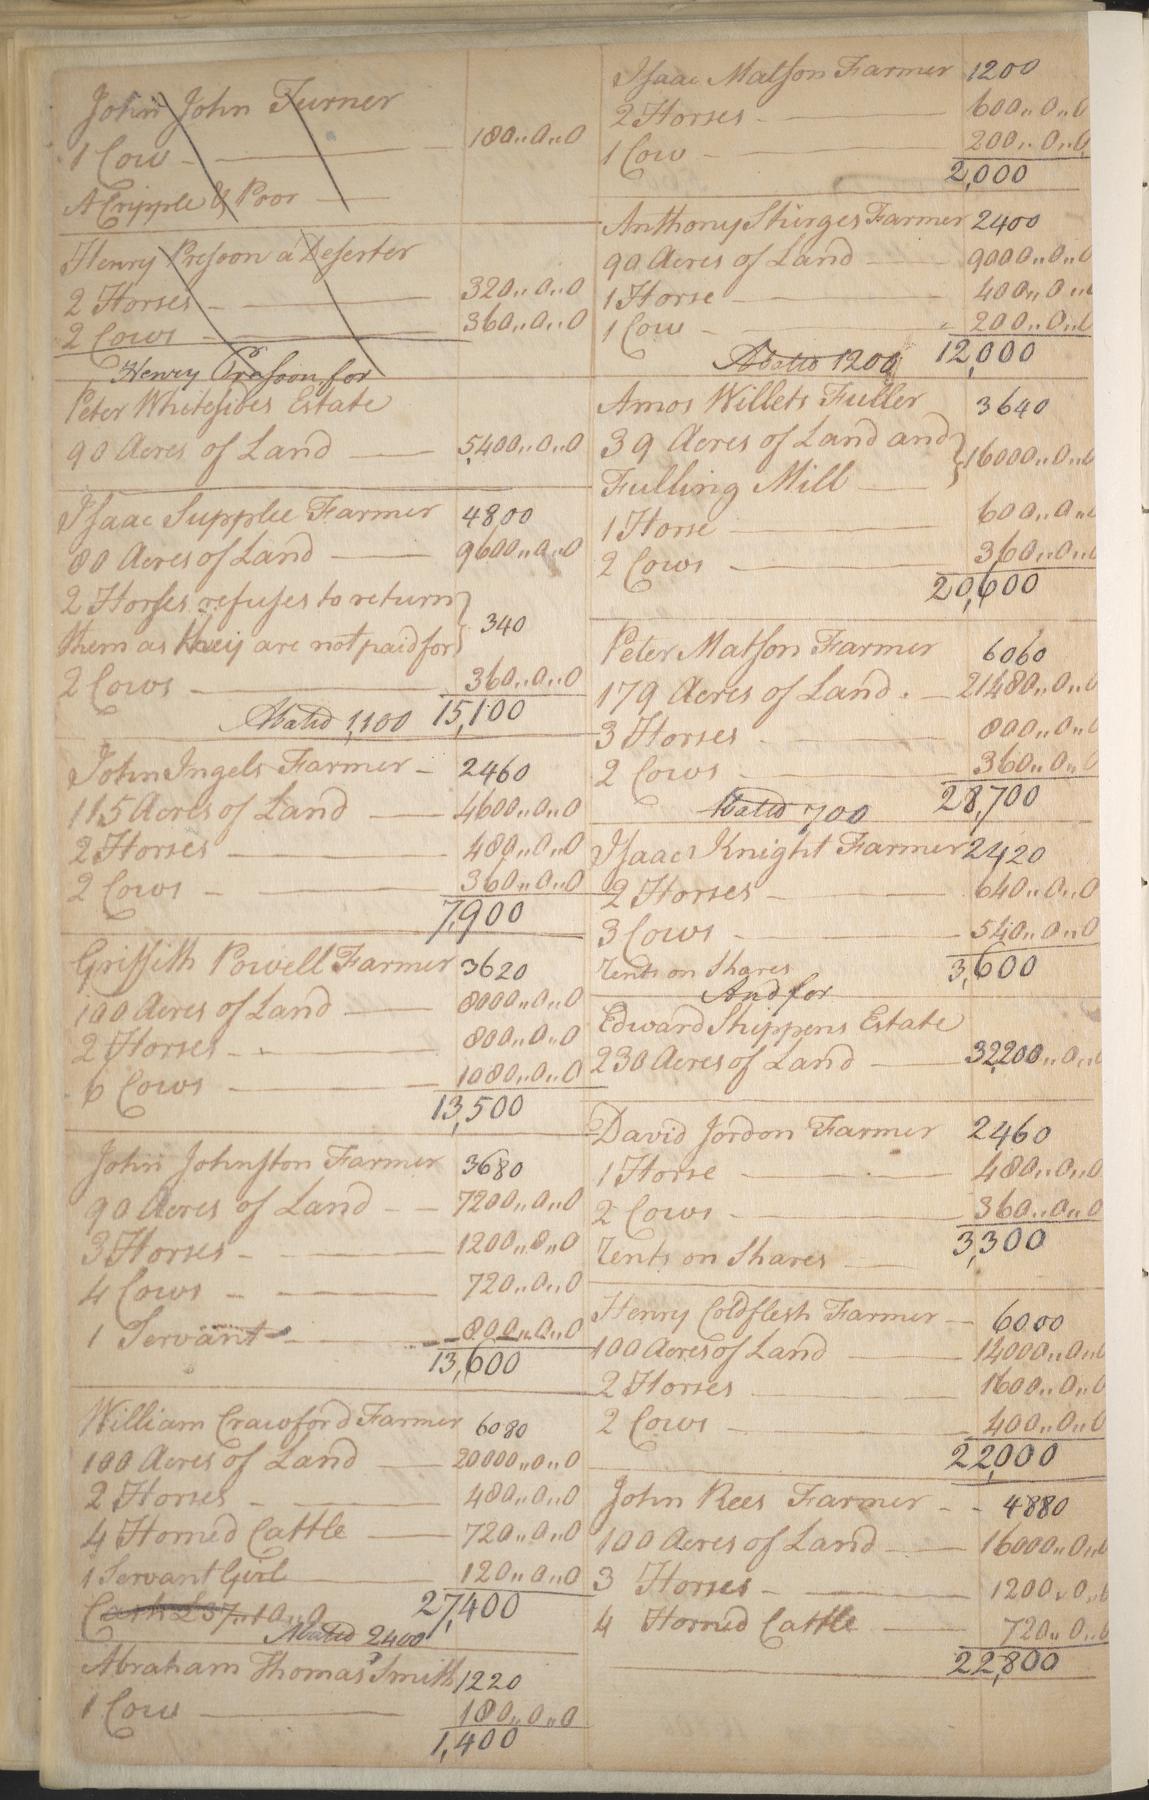 John John Turner
1 Cow — 180,,0,,0
A Cripple & Poor —
Henry Presoon a Deserter
2 Horses — 320,,0,,0
2 Cows — 360,,0,,0
Henry Presoon for
Peter Whitesides Estate
90 Acres of Land — 5,400,,0,,0
Isaac Supplee Farmer 4800
80 Acres of Land — 9600,,0,,0
2 Horses refuses to return
them as they are not paid for } 340
2 Cows — 360,,0,,0
Abated 1,100 15,100
John Ingels Farmer - 2460
115 Acres of Land — 4600,,0,,0
2 Horses — 480,,0,,0
2 Cows — 360,,0,,0
7,900
Griffith Powell Farmer 3620
100 Acres of Land — 8000,,0,,0
2 Horses — 800,,0,,0
6 Cows — 1080,,0,,0
13,500
John Johnston Farmer 3680
90 Acres of Land — 7200,,0,,0
3 Horses — 1200,,0,,0
4 Cows — 720,,0,,0
1 Servant — 800,,0,,0
13,600
William Crawford Farmer 6080
100 Acres of Land — 20000,,0,,0
2 Horses — 480,,0,,0
4 Horned Cattle — 720,,0,,0
1 Servant Girl — 120,,0,,0
Cash £37,,10,,0 27,400
Abated 2400
Abraham Thomas Smith 1220
1 Cow — 180,,0,,0
1,400
Isaac Matson Farmer 1200
2 Horses — 600,,0,,0
1 Cow — 200,,0,,0
2,000
Anthony Sturges Farmer 2400
90 Acres of Land — 9000,,0,,0
1 Horse — 400,,0,,0
1 Cow — 200,,0,,0
Abated 1200 12,000
Amos Willets Fuller 3640
39 Acres of Land and } 16000,,0,,0
Fulling Mill —
1 Horse — 600,,0,,0
2 Cows — 360,,0,,0
20,600
Peter Matson Farmer 6060
179 Acres of Land . — 21480,,0,,0
3 Horses — 800,,0,,0
2 Cows — 360,,0,,0
Abated 700 28,700
Isaac Knight Farmer 2420
2 Horses — 640,,0,,0
3 Cows — 540,,0,,0
Rents on Shares 3,600
And for
Edward Shippens Estate
230 Acres of Land — 32,200,,0,,0
David Jordon Farmer 2460
1 Horse — 480,,0,,0
2 Cows — 360,,0,,0
Rents on Shares — 3,300
Henry Coldflesh Farmer — 6000
100 Acres of Land — 14000,,0,,0
2 Horses — 1600,,0,,0
2 Cows — 400,,0,,0
22,000
John Rees Farmer - - 4880
100 Acres of Land — 16000,,0,,0
3 Horses - — 1200,,0,,0
4 Horned Cattle — 720,,0,,0
22,800